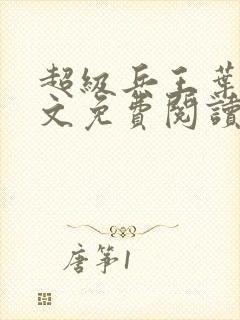 超级兵王葉
文免費閱讀
唐筝1